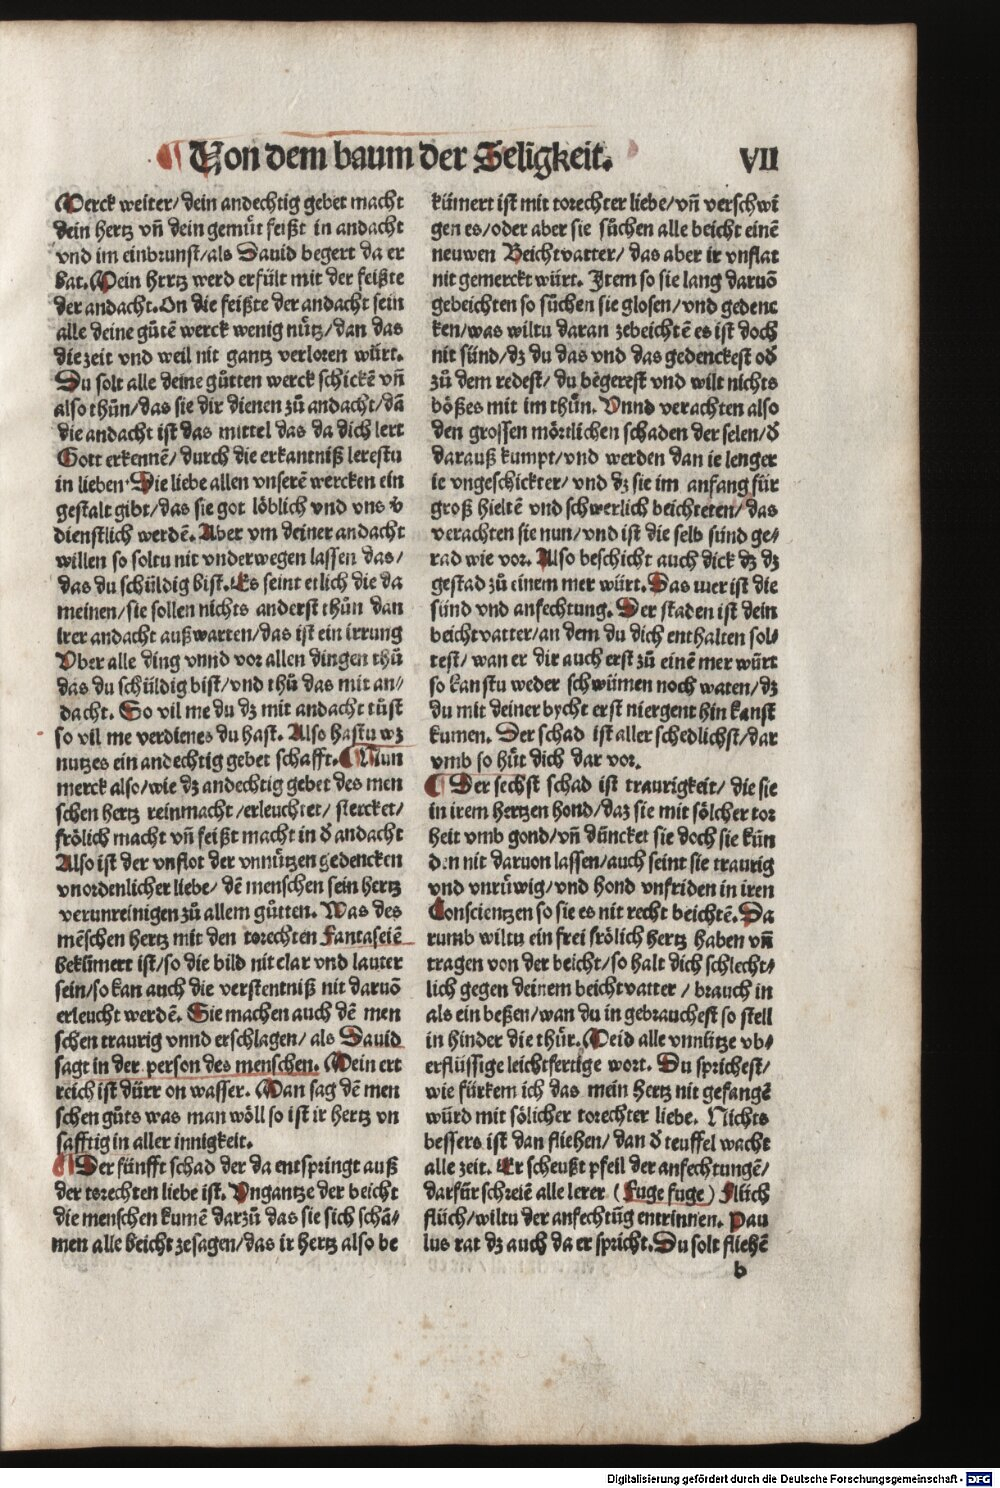 Von dem baum der Seligkeit.
VII
Merck weiter/ dein andechtig gebet macht
dein hertz vñ dein gemüt feißt in andacht
vnd im einbrunst/als Dauid begert da er
bat. Mein hrrtz werd erfült mit der feißte
der andacht. On die feißte der andacht sein
alle deine gůtẽ werck wenig nütz/dan das
die zeit vnd weil nit gantz verloren würt.
Du solt alle deine gůtten werck schickẽ vñ
also thůn/das sie dir dienen zů andacht/dã
die andacht ist das mittel das da dich lert
Gott erkennẽ/ durch die erkantniß lerestu
in lieben. Die liebe allen vnserẽ wercken ein
gestalt gibt/das sie got löblich vnd vns v̄
dienstlich werdẽ. Aber vm deiner andacht
willen so soltu nit vnderwegen lassen das/
das du schüldig bist. Es seint etlich die da
meinen/sie sollen nichts anderst thůn dan
irer andacht außwarten/das ist ein irrung
Vber alle ding vnnd vor allen dingen thů
das du schüldig bist/vnd thů das mit an⸗
dacht. So vil me du dz mit andacht tůst
so vil me verdienes du hast. Also hastu wz
nutzes ein andechtig gebet schafft. ¶ Nun
merck also/wie dz andechtig gebet des men
schen hertz reinmacht/erleuchtet/ stercket/
frölich macht vñ feißt macht in d̄ andacht
Also ist der vnflot der vnnützen gedencken
vnordenlicher liebe/ dẽ menschen sein hertz
verunreinigen zů allem gůtten. Was des
mẽschen hertz mit den torechten Fantaseiẽ
bekümert ist/so die bild nit clar vnd lauter
sein/so kan auch die verstentniß nit daruõ
erleucht werdẽ. Sie machen auch dẽ men
schen traurig vnnd erschlagen/ als Dauid
sagt in der person des menschen. Mein ert
reich ist dürr on wasser. Man sag dẽ men
schen gůts was man wöll so ist ir hertz vn
safftig in aller innigkeit.
¶ Der fünfft schad der da entspringt auß
der torechten liebe ist. Vngantze der beicht
die menschen kumẽ darzů das sie sich schã⸗
men alle beicht zesagen/das ir hertz also be
kümert ist mit torechter liebe/vñ verschwi
gen es/oder aber sie sůchen alle beicht einẽ
neuwen Beichtvatter/das aber ir vnflat
nit gemerckt würt. Item so sie lang daruõ
gebeichten so sůchen sie glosen/vnd gedenc
ken/was wiltu daran zebeichtẽ es ist doch
nit sünd/dz du das vnd das gedenckest od̄
zů dem redest/ du begerest vnd wilt nichts
bößes mit im thůn. Vnnd verachten also
den grossen mörtlichen schaden der selen/d̄
darauß kumpt/vnd werden dan ie lenger
ie vngeschickter/ vnd dz sie im anfang für
groß hieltẽ vnd schwerlich beichteten/ das
verachten sie nun/vnd ist die selb sünd ge⸗
rad wie vor. Also beschicht auch dick dz dz
gestad zů einem mer würt. Das mer ist die
sünd vnd anfechtung. Der staden ist dein
beichtvatter/an dem du dich enthalten sol⸗
test/ wan er dir auch erst zů einẽ mer würt
so kanstu weder schwümen noch waten/dz
du mit deiner bycht erst niergent hin kanst
kumen. Der schad ist aller schedlichst/dar
vmb so hůt dich dar vor.
¶ Der sechst schad ist traurigkeit/ die sie
in irem hertzen hond/daz sie mit sölcher tor
heit vmb gond/vñ düncket sie doch sie kün
den nit daruon lassen/auch seint sie traurig
vnd vnrüwig/vnd hond vnfriden in iren
Conscientzen so sie es nit recht beichtẽ. Da
rumb wiltu ein frei frölich hertz haben vñ
tragen von der beicht/so halt dich schlecht⸗
lich gegen deinem beichtvatter / brauch in
als ein beßen/wan du in gebrauchest so stell
in hinder die thür. Meid alle vnnütze vb⸗
erflüssige leichtfertige wort. Du sprichest/
wie fürkem ich das mein hertz nit gefangẽ
würd mit sölicher torechter liebe. Nichts
bessers ist dan fliehen/dan d̄ teuffel wacht
alle zeit. Er scheußt pfeil der anfechtungẽ/
darfür schreiẽ alle lerer (Fuge fuge) Flüch
flüch/wiltu der anfechtũg entrinnen. Pau
lus rat dz auch da er spricht. Du solt fliehẽ
b
Digitalisierung gefördert durch die Deutsche Forschungsgemeinschaft - DFG